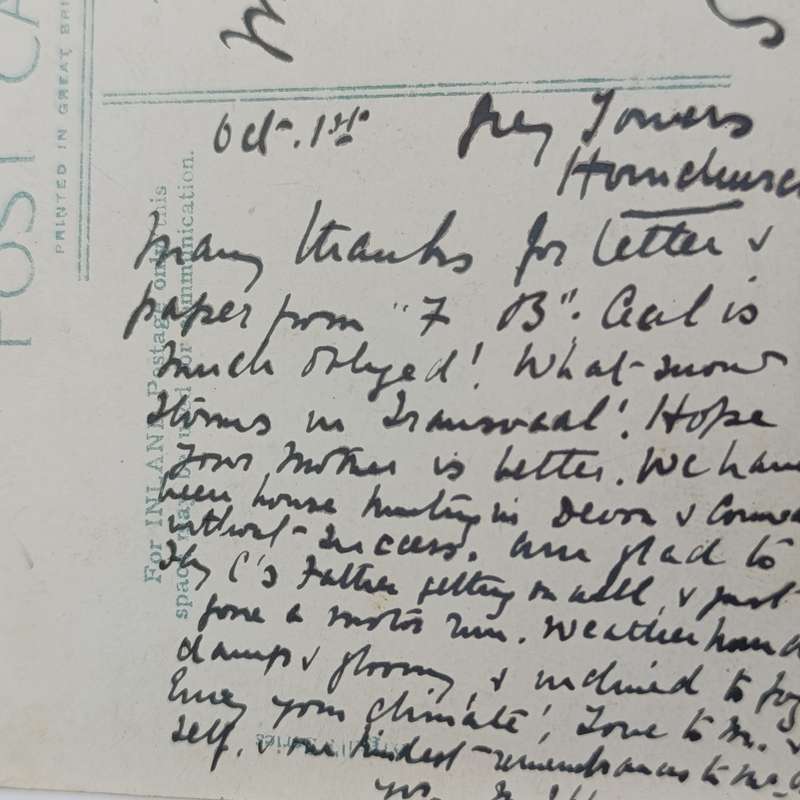 POST CA
PRINTED IN GREAT BRI
For INLAND Postage only this
space may be used for communication.
Oct. 1st. Grey Towers
Hornchurch
Many thanks for letter &
paper from "F B". Ceal is
much obliged! What snow
storms in Transvaal! Hope
your Mother is better. We have
been house hunting in Devon & Cornwall
without success. Am glad to
say C's Father getting on well, & just
gone a motor run. Weather here
damp & gloomy, & inclined to fog
Envy your climate! Love to M. &
self, & our kindest remembrances to
yrs.